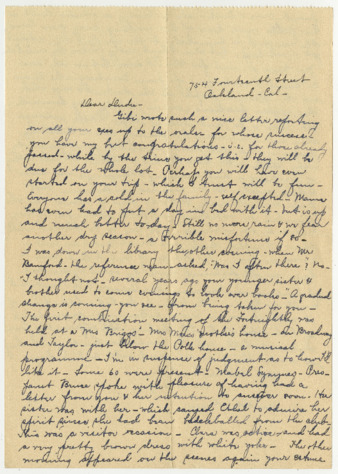 754 Fourteenth Street
Oakland - Cal -
Dear Deuder -
Gebe wrote such a nice letter reporting
on all your exes up to the orales for whose success
you have my best congratulations - i.e. for those already
passed - while by the time you get this - they will be
due for the whole lot. Perhaps you will have even
started on your trip - which I trust will be fine -
Everyone has a cold in the family self excepted - Mama
has even had to put a day in bed with it - but is up
and much better today. Still no more rain & we fear
another dry season - a terrible misfortune if so -
I was down in the library the other evening - when Mr
the reference man asked, "Was I often there? No -
I thought not - several years ago your younger sister &
brother used to come evenings to work over books - A gradual
change is coming - you see from being taken for you -
The first meeting of the Fortnightly was
held at a Mrs Briggs' - Mrs brother's house - cor Broadway
and Taylor - just below the Polk house - a musical
programme - I'm in suspense of judgment as to how I'll
like it - Some 60 were present - Mabel Symmes -
Janet Bruce spoke with pleasure of having had a
letter from you & her intention to answer soon. Her
sister was with her - which caused Ethel to admire her
spirit since she had been from the club -
This was a visitor session - Clare was active and had
a very pretty brown dress with white yoke - The other
morning appeared on the scenes again your